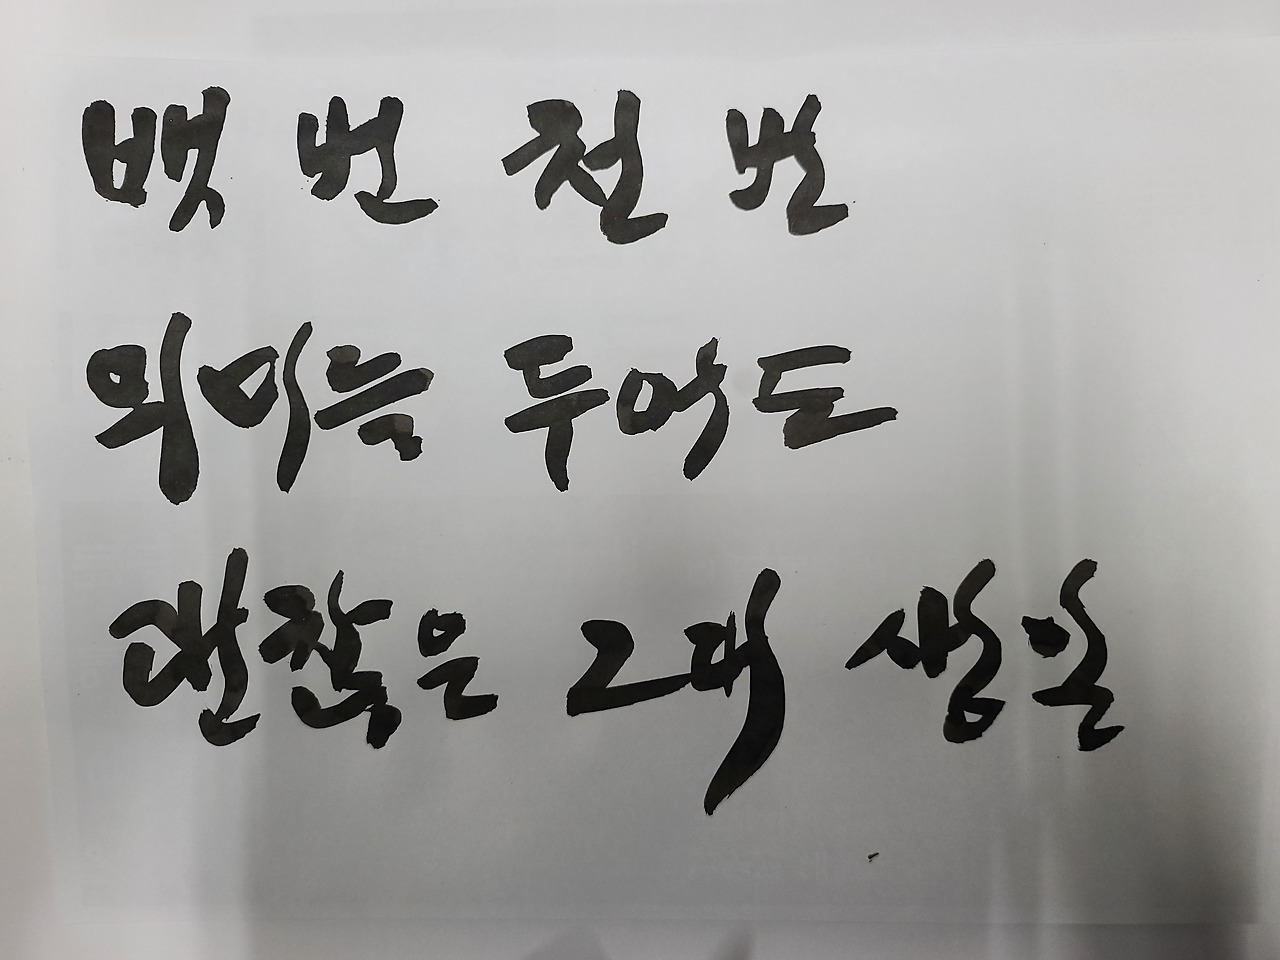 백 번 천 번
의미를 두어도
괜찮은 그대 생일